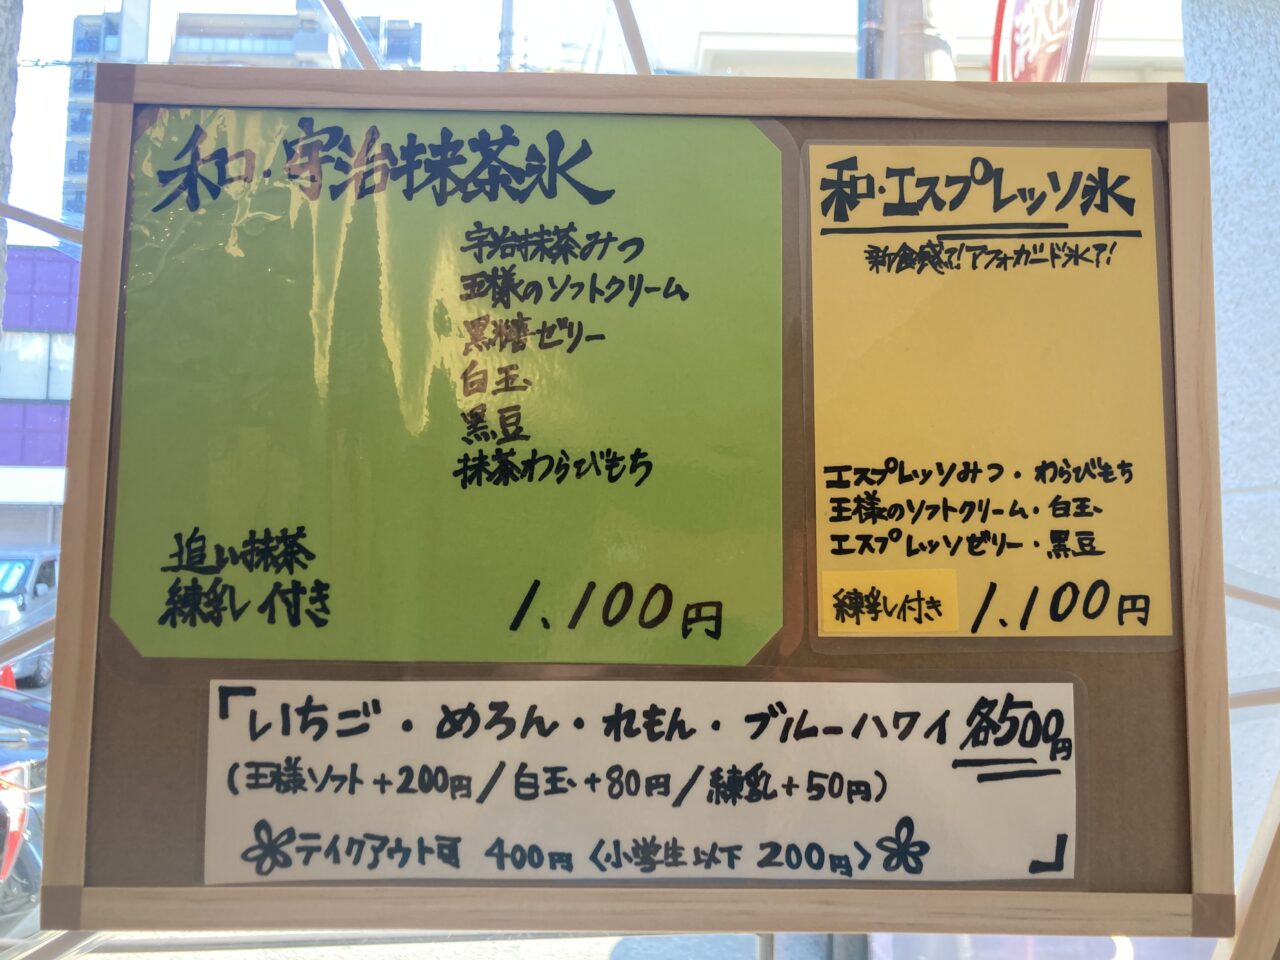 和・宇治抹茶氷
宇治抹茶みつ
王様のソフトクリーム
黒糖ゼリー
白玉
黒豆
抹茶わらびもち
追い抹茶
練乳付き
1,100円
和・エスプレッソ氷
新食感!?アフォガード氷?!
エスプレッソみつ・わらびもち
王様のソフトクリーム・白玉
エスプレッソゼリー・黒豆
練乳付き 1,100円
「いちご・めろん・れもん・ブルーハワイ 各500円
(王様ソフト+200円/白玉+80円/練乳+50円)
テイクアウト可 400円〈小学生以下 200円〉」